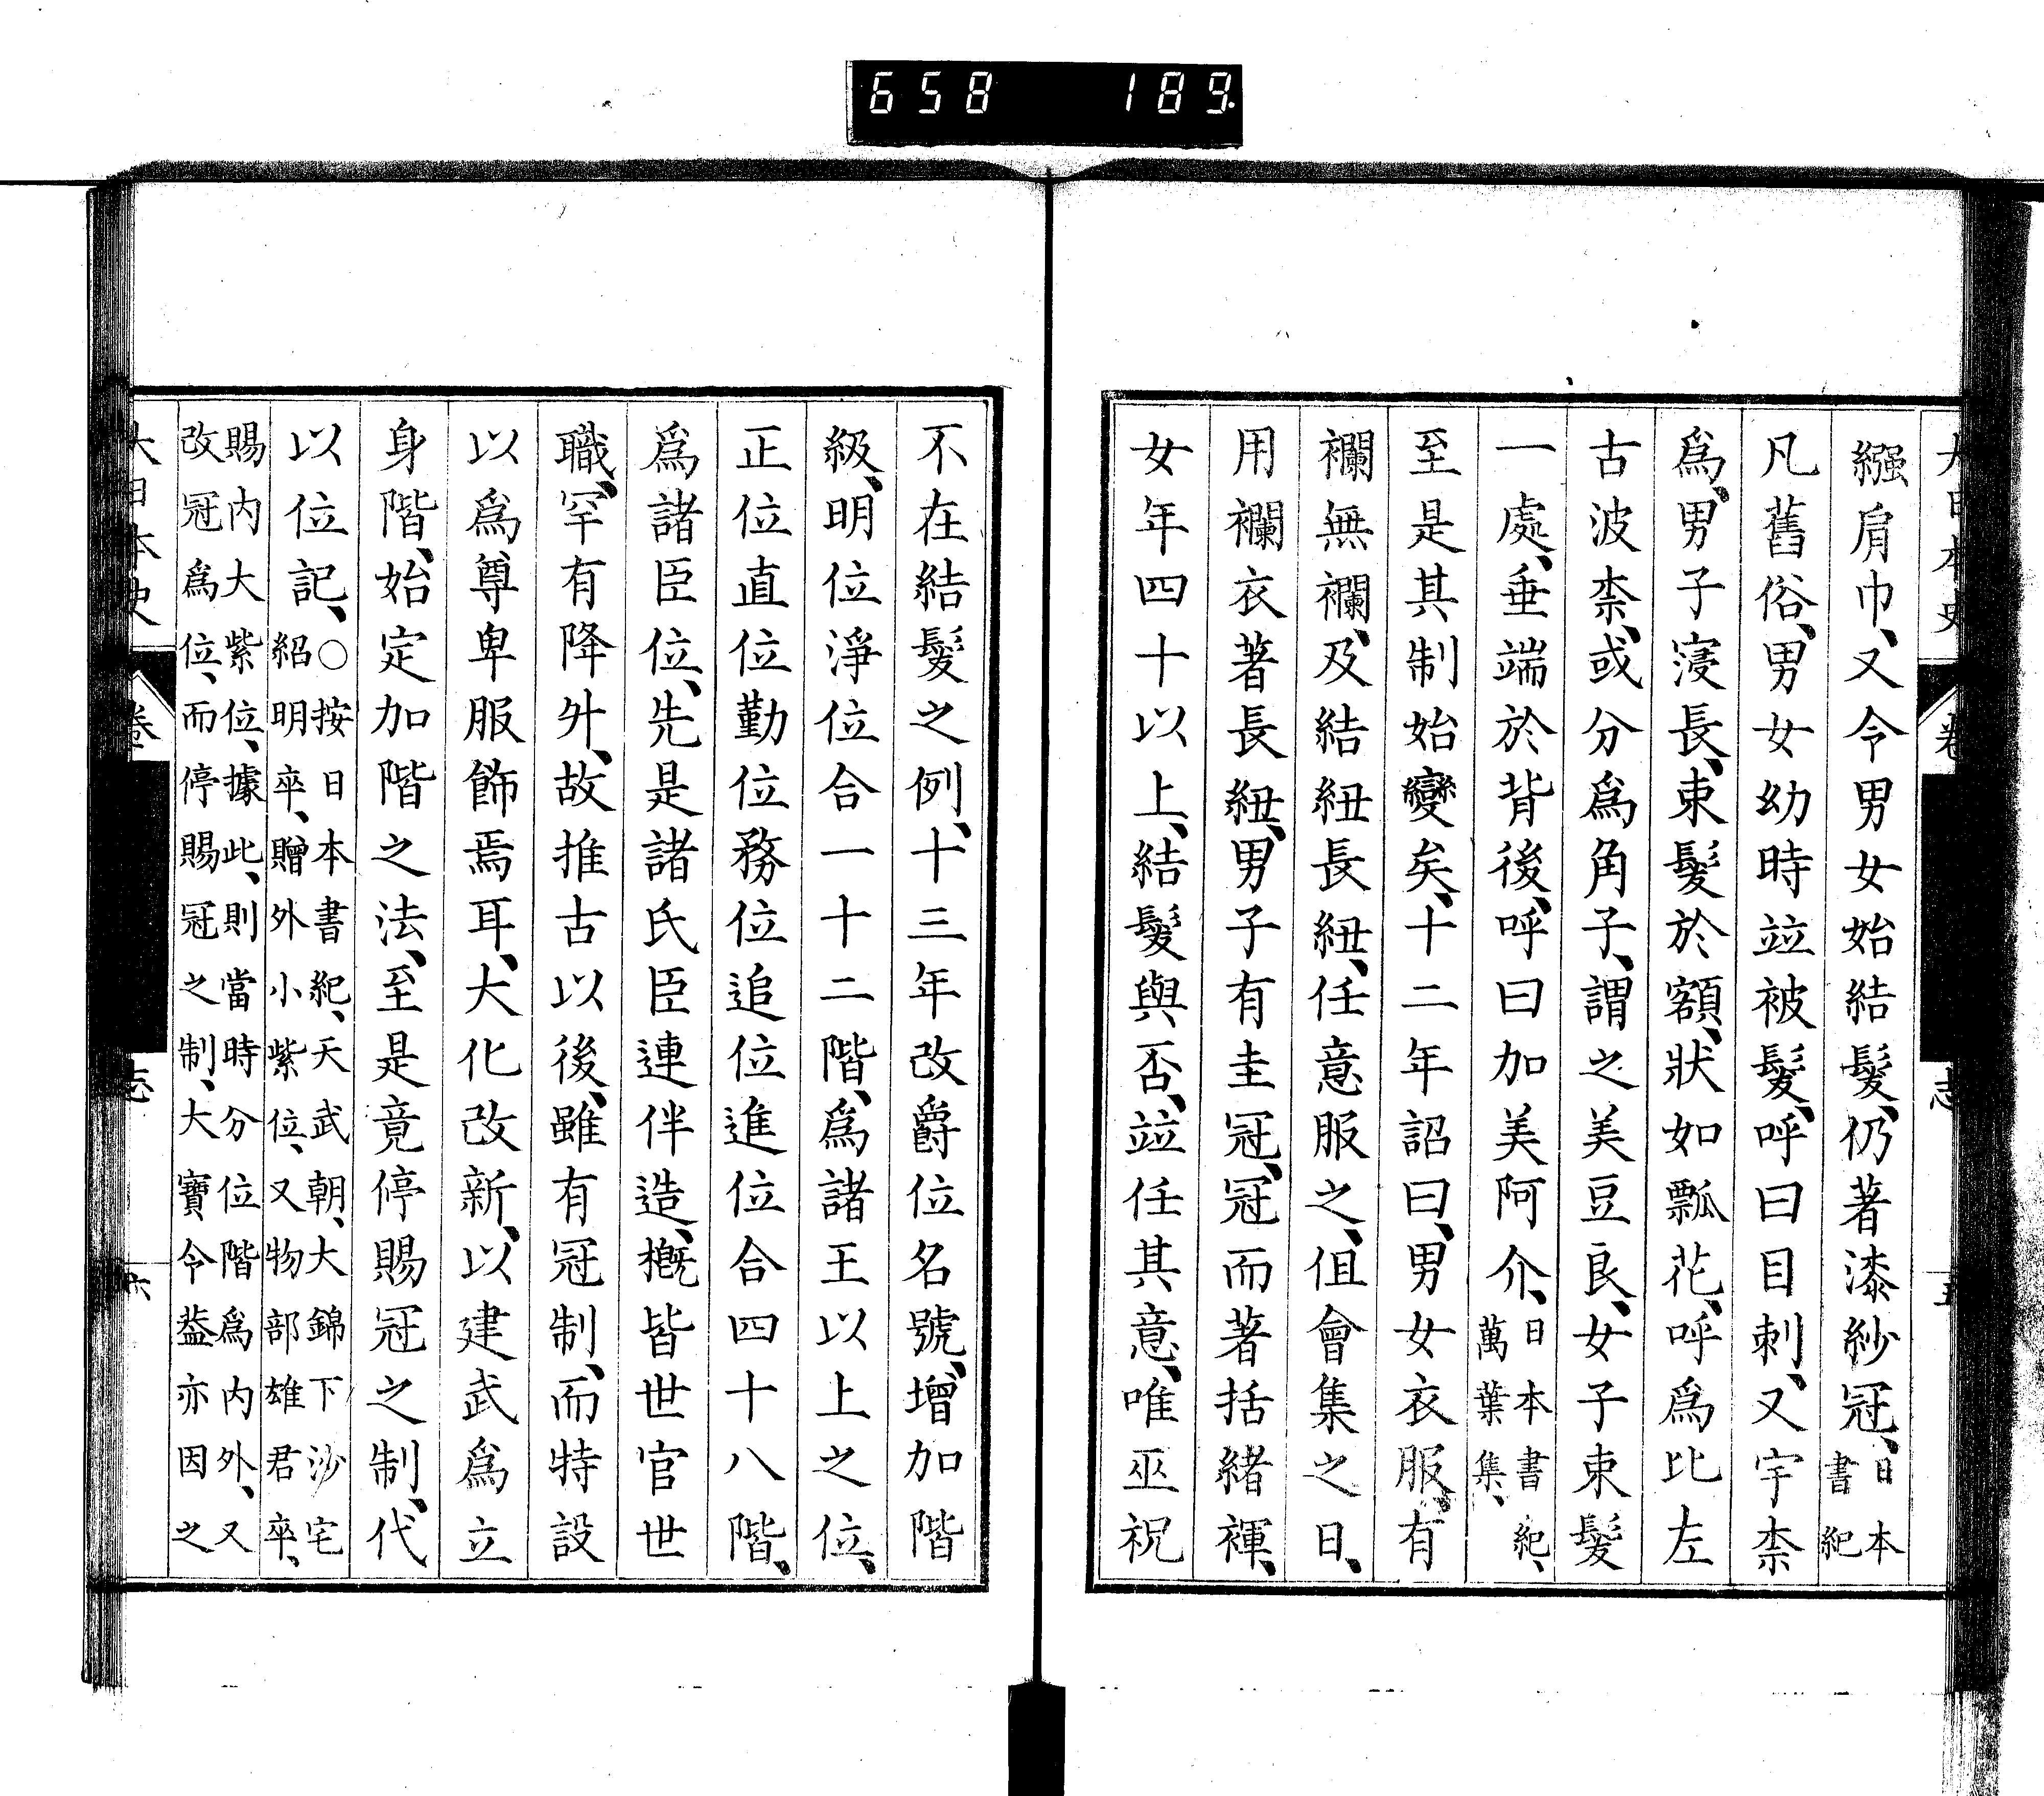 658 189
大日本史 卷 志 五
繦肩巾、又令男女始結髮、仍著漆紗冠、日本書紀
凡舊俗、男女幼時竝被髮、呼曰目刺、又宇柰
爲、男子寖長、束髮於額、狀如瓢花、呼爲比左
古波柰、或分爲角子、謂之美豆良、女子束髮
一處、垂端於背後、呼曰加美阿介、日本書紀、萬葉集、
至是其制始變矣、十二年詔曰、男女衣服、有
襴無襴、及結紐長紐、任意服之、但會集之日、
用襴衣著長紐、男子有圭冠、冠而著括緖褌、
女年四十以上、結髮與否、竝任其意、唯巫祝
不在結髮之例、十三年改爵位名號、增加階
級、明位淨位合一十二階、爲諸王以上之位、
正位直位勤位務位追位進位合四十八階、
爲諸臣位、先是諸氏臣連伴造、槪皆世官世
職、罕有降升、故推古以後、雖有冠制、而特設
以爲尊卑服飾焉耳、大化改新、以建武爲立
身階、始定加階之法、至是竟停賜冠之制、代
以位記、○按日本書紀、天武朝、大錦下沙宅
紹明卒、贈外小紫位、又物部雄君卒、
賜內大紫位、據此、則當時分位階爲內外、又
改冠爲位、而停賜冠之制、大寶令蓋亦因之
大日本史 卷 志 六